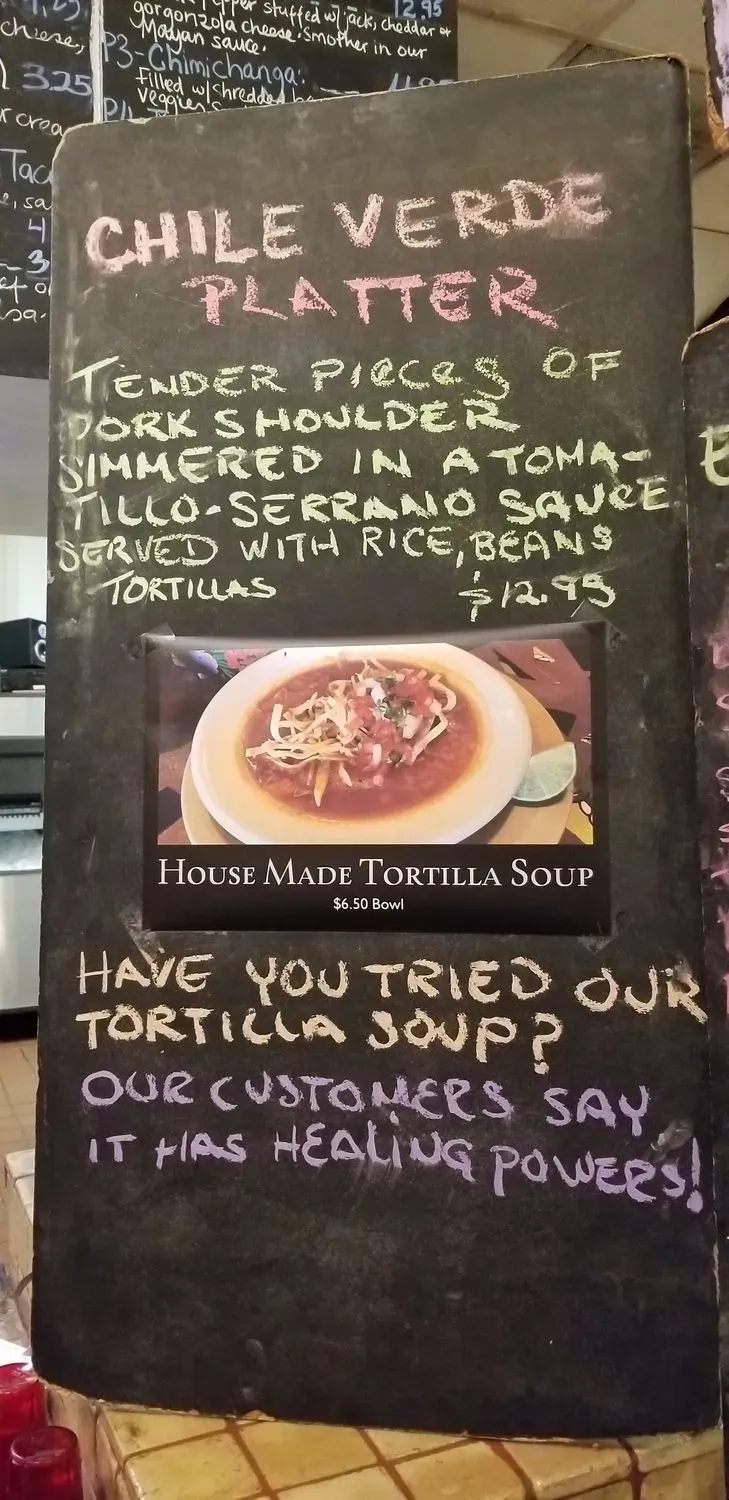 12.95
pepper stuffed w/ jack, cheddar or
gorgonzola cheese. Smother in our
Mayan sauce.
P3-Chimichanga:
filled w/ shredded
veggies
cheese,
3.25
r crea
Taco
CHILE VERDE
PLATTER
TENDER PIECES OF
PORK SHOULDER
SIMMERED IN A TOMA-
TILLO-SERRANO SAUCE
SERVED WITH RICE, BEANS
TORTILLAS $12.95
HOUSE MADE TORTILLA SOUP
$6.50 Bowl
HAVE YOU TRIED OUR
TORTILLA SOUP?
OUR CUSTOMERS SAY
IT HAS HEALING POWERS!